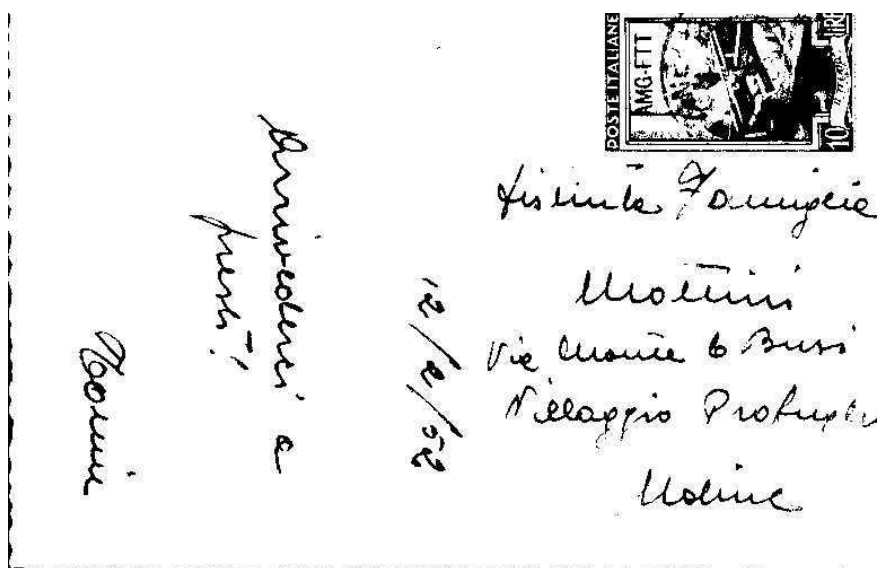 POSTE ITALIANE
AMG-FTT
LIRE
10
Arrivederci a
presto!
12/2/52
Distinta Famiglia
Via Monte 6 Busi
Villaggio Profughi
Udine